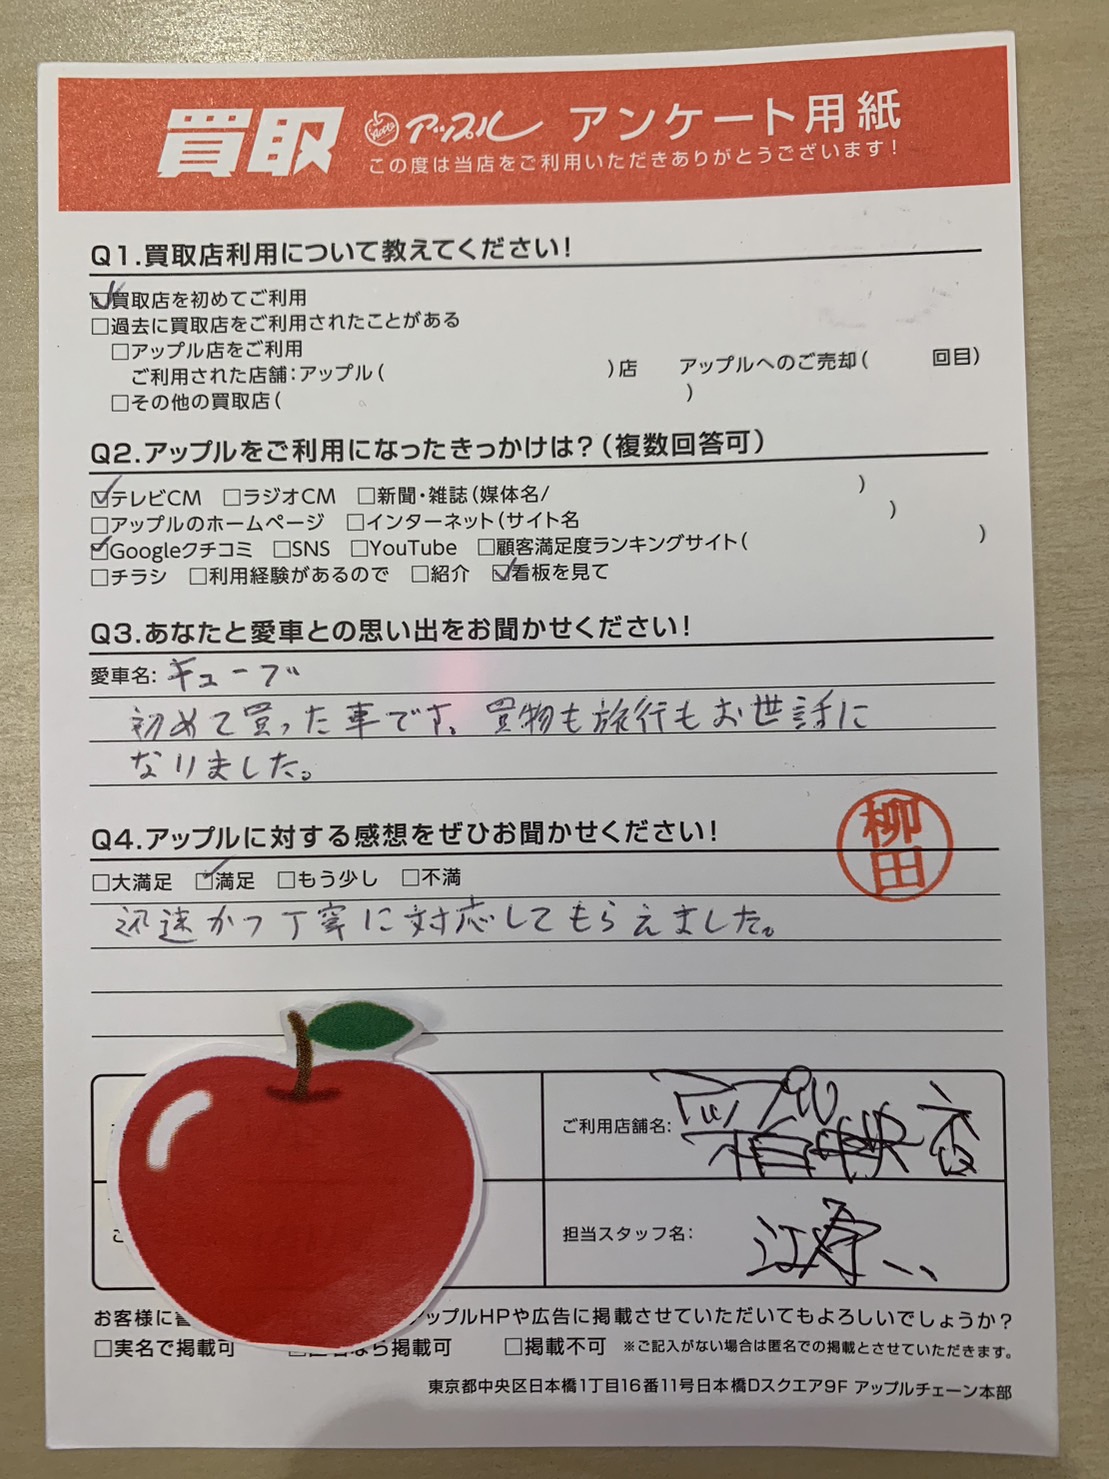 買取 Apple アップル アンケート用紙
この度は当店をご利用いただきありがとうございます!
Q1.買取店利用について教えてください!
☑買取店を初めてご利用
□過去に買取店をご利用されたことがある
□アップル店をご利用
ご利用された店舗:アップル( )店 アップルへのご売却( 回目)
□その他の買取店( )
Q2.アップルをご利用になったきっかけは?(複数回答可)
☑テレビCM □ラジオCM □新聞・雑誌(媒体名/ )
□アップルのホームページ □インターネット(サイト名 )
☑Googleクチコミ □SNS □YouTube □顧客満足度ランキングサイト( )
□チラシ □利用経験があるので □紹介 ☑看板を見て
Q3.あなたと愛車との思い出をお聞かせください!
愛車名: キューブ
初めて買った車です。買物も旅行もお世話に
なりました。
Q4.アップルに対する感想をぜひお聞かせください!
柳田
□大満足 ☑満足 □もう少し □不満
迅速かつ丁寧に対応してもらえました。
ご利用店舗名: アップル
中央店
担当スタッフ名:
お客様に アップルHPや広告に掲載させていただいてもよろしいでしょうか?
□実名で掲載可 なら掲載可 □掲載不可 ※ご記入がない場合は匿名での掲載とさせていただきます。
東京都中央区日本橋1丁目16番11号日本橋Dスクエア9F アップルチェーン本部